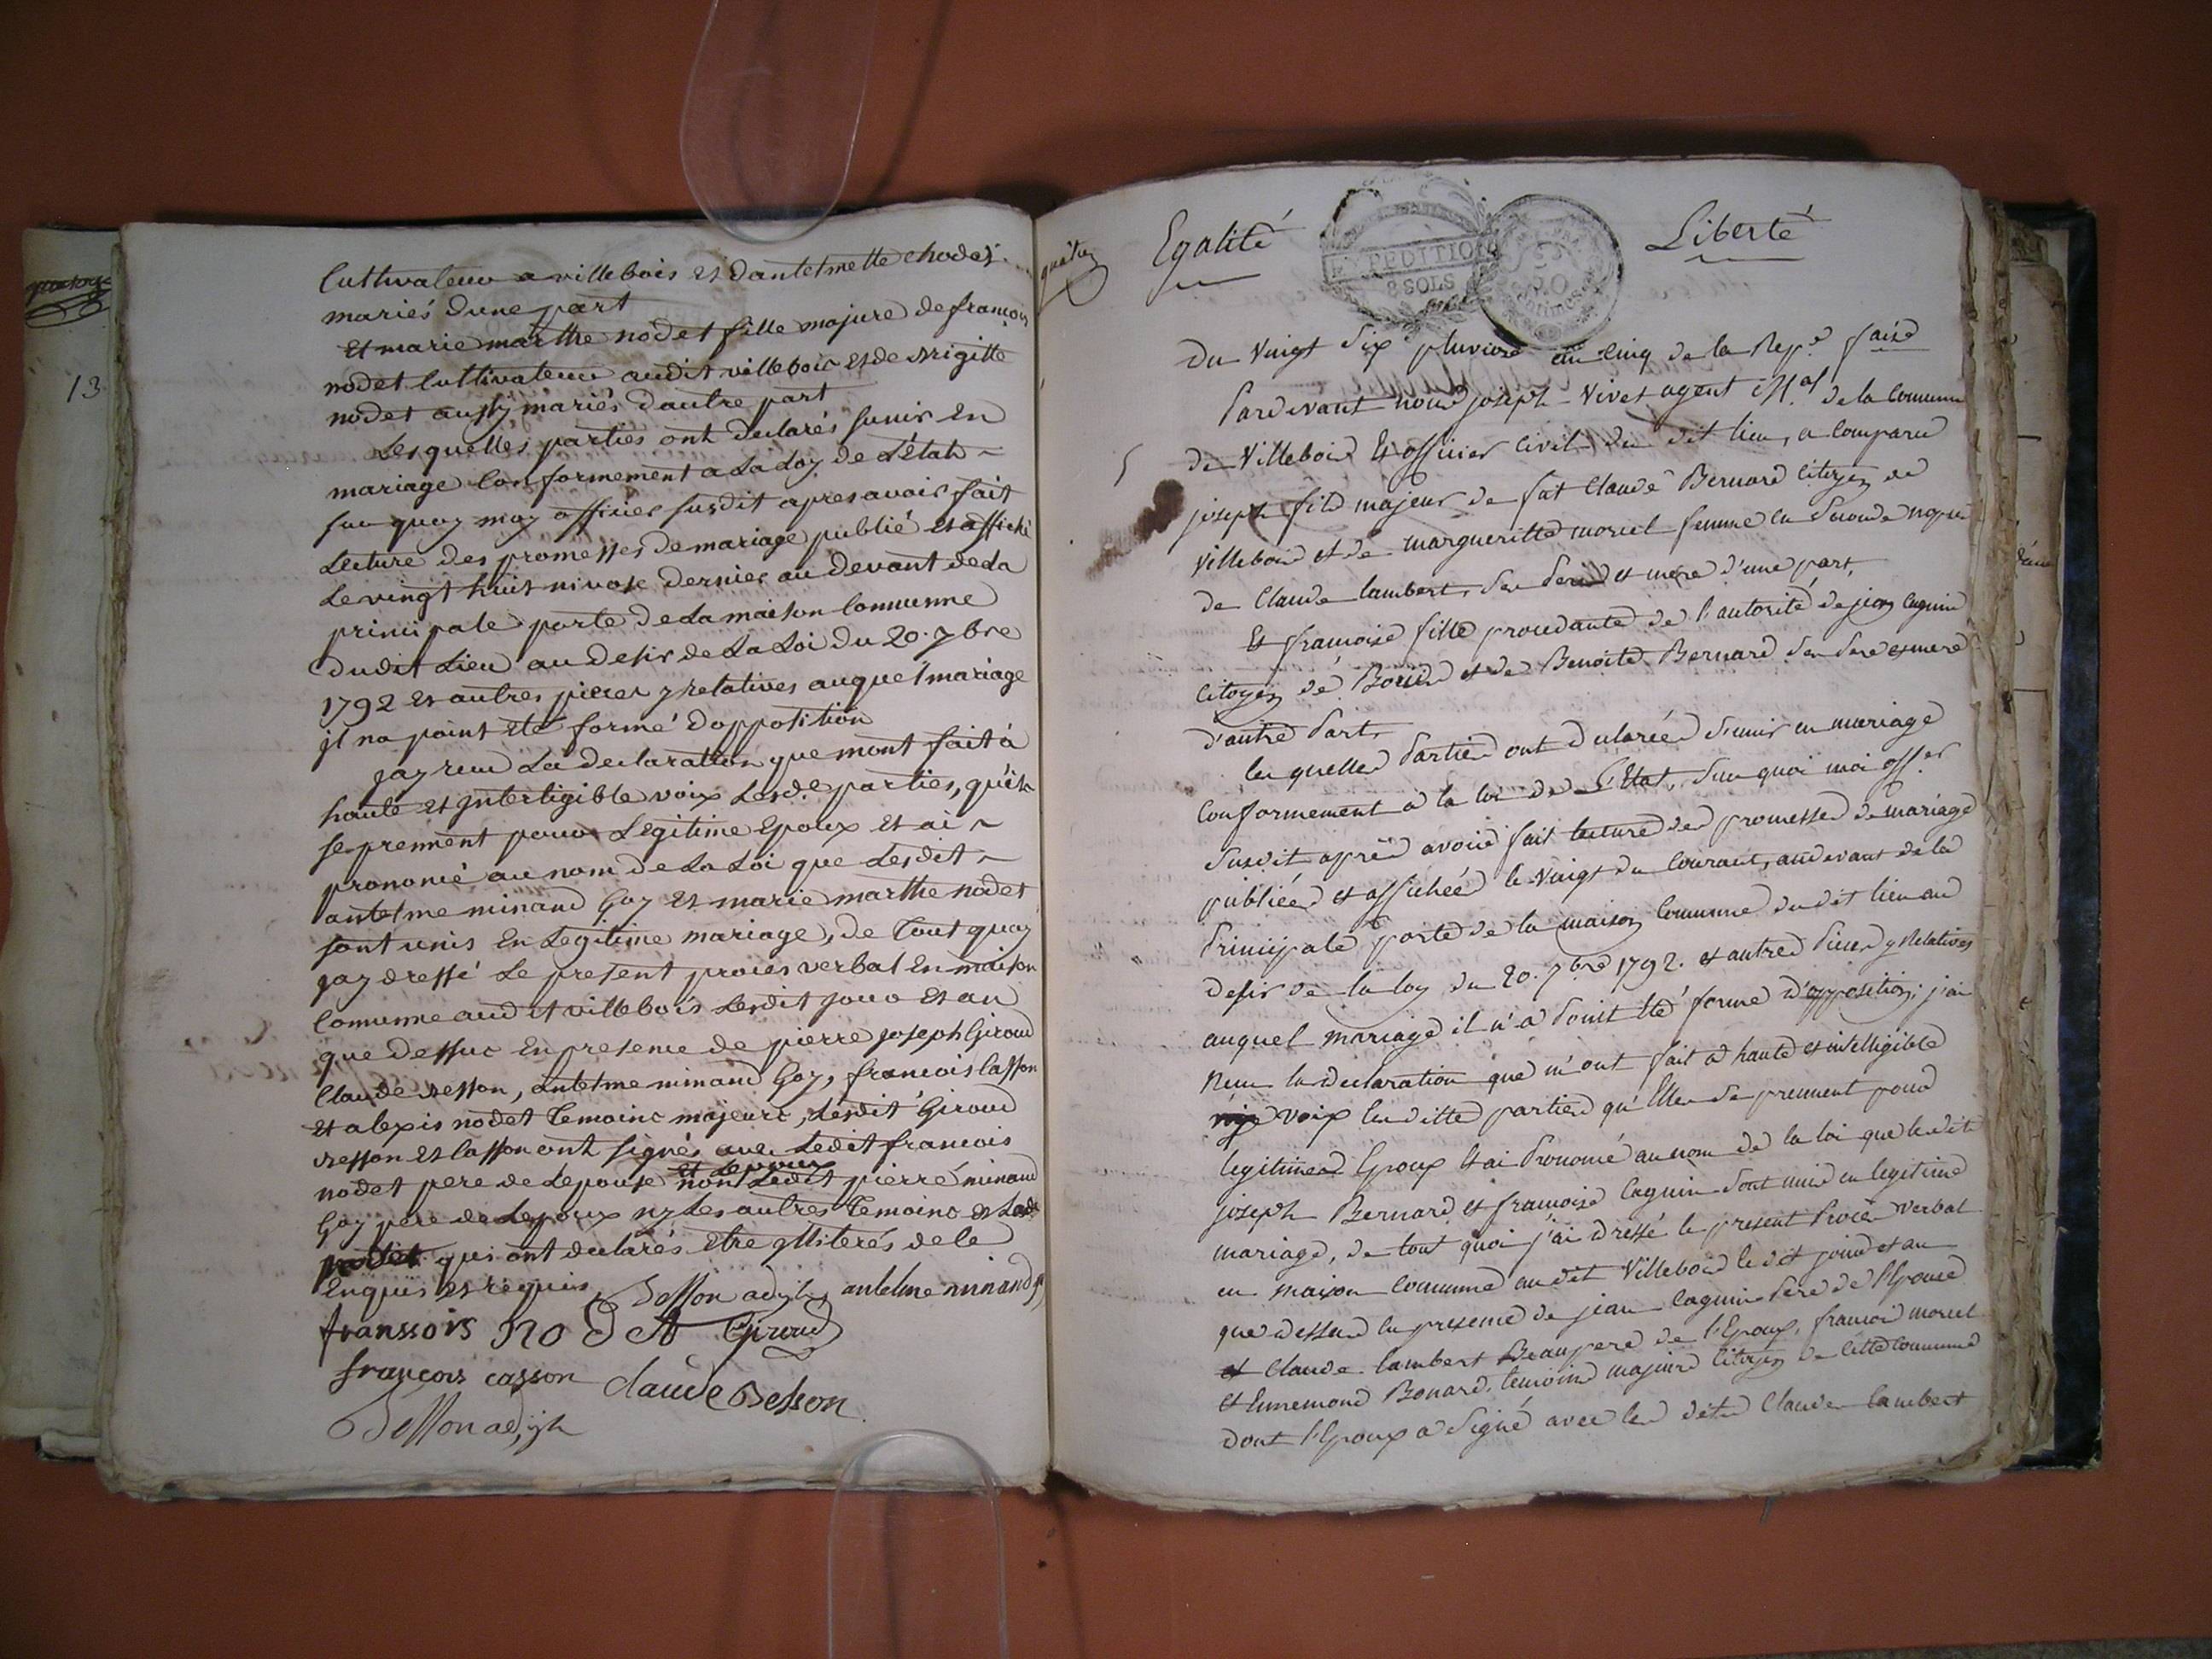 13
Cultivateur a villebois et dantelmette chodet
mariés dune part
et marie marthe nodet fille majure de francois
nodet Cultivateur audit villebois et de Brigitte
nodet aussy mariés dautre part
Lesquelles parties ont declarés sunir En
mariage Conformement a La Loy de L'état
sur quoy moy officier susdit apres avoir fait
Lecture des promesses de mariage publié et affiché
Le vingt huit nivose dernier au devant de La
principale porte de La maison Commune
dudit Lieu au desir de La Loi du 20. 7bre
1792 et autres pieces y relatives auquel mariage
jl na point été formé dopposition
jay recu La declaration que mont fait à
haute et jntertigible voix Lesd.e parties, qu'ils
se prennent pour Legitime Epoux et ai
prononcé au nom de La Loi que Lesdit
antelme minand Goy et marie marthe nodet
sont unis En Legitime mariage, de Tout quoy
jay dressé Le present proces verbal En maison
Commune audit villebois Lesdit jour et an
que dessus En presence de pierre joseph Giroud
Claude Besson, antelme minand Goy, francois Casson
et alexis nodet Temoins majeurs, Lesdit Giroud
Besson et Casson ont signés avec Ledit francois
et Lepoux
nodet pere de Lepouse non Ledit pierre minand
Goy pere de Lepoux ny Les autres Temoins
qui ont declarés être jlliterés de Ce
Enquis et requis Besson adjt antelme minand
franssois NODET Giroud
françois casson Claude Besson
Besson adjt
Egalité
EXPEDITION
8 SOLS
50
Centimes
Liberté
Du Vingt Six pluviose an cinq de la Rep.e faise
Pardevant nous joseph Vivet agent M.al de la Commune
5
de Villebois Et officier civil du dit lieu, a Comparu
joseph fils majeur de fut Claude Bernard Citoyen de
Villebois et de margueritte morcel femme en Seconde nopce
de Claude lambert, Ses Pere et mere d'une part,
Et francoise fille procedante de l'autorité de jean Cagnin
Citoyen de et de Benoite Bernard Ses Pere et mere
d'autre Part,
lesquelles Parties ont declarées S'unir en mariage
Conformement a la loi de L'Etat, Sur quoi moi off.er
Susdit après avoir fait lecture des promesses de mariage
publiées et affichées le Vingt du Courant, au devant de la
Principale porte de la maison Commune du dit lieu au
desir de la loy du 20. 7bre 1792. et autres Pieces y Relatives
auquel mariage il n'a Point été formé d'opposition; j'ai
Recu la declaration que m'ont fait a haute et intelligible
voix lesditte parties qu'Elles se prennent pour
legitimes Epoux Et ai Prononcé au nom de la loi que ledit
joseph Bernard et francoise Cagnin Sont unis en legitime
mariage, de tout quoi j'ai dressé le present Procès verbal
en maison Commune au dit Villebois le dit jour et an
que dessus en presence de jean Cagnin Pere de l'Epouse
et Claude lambert Beaupere de l'Epoux, francois morcel
Et Ennemond Bonard, temoins majeurs Citoyen de Cette Commune
dont l'Epoux a Signé avec les dits Claude lambert